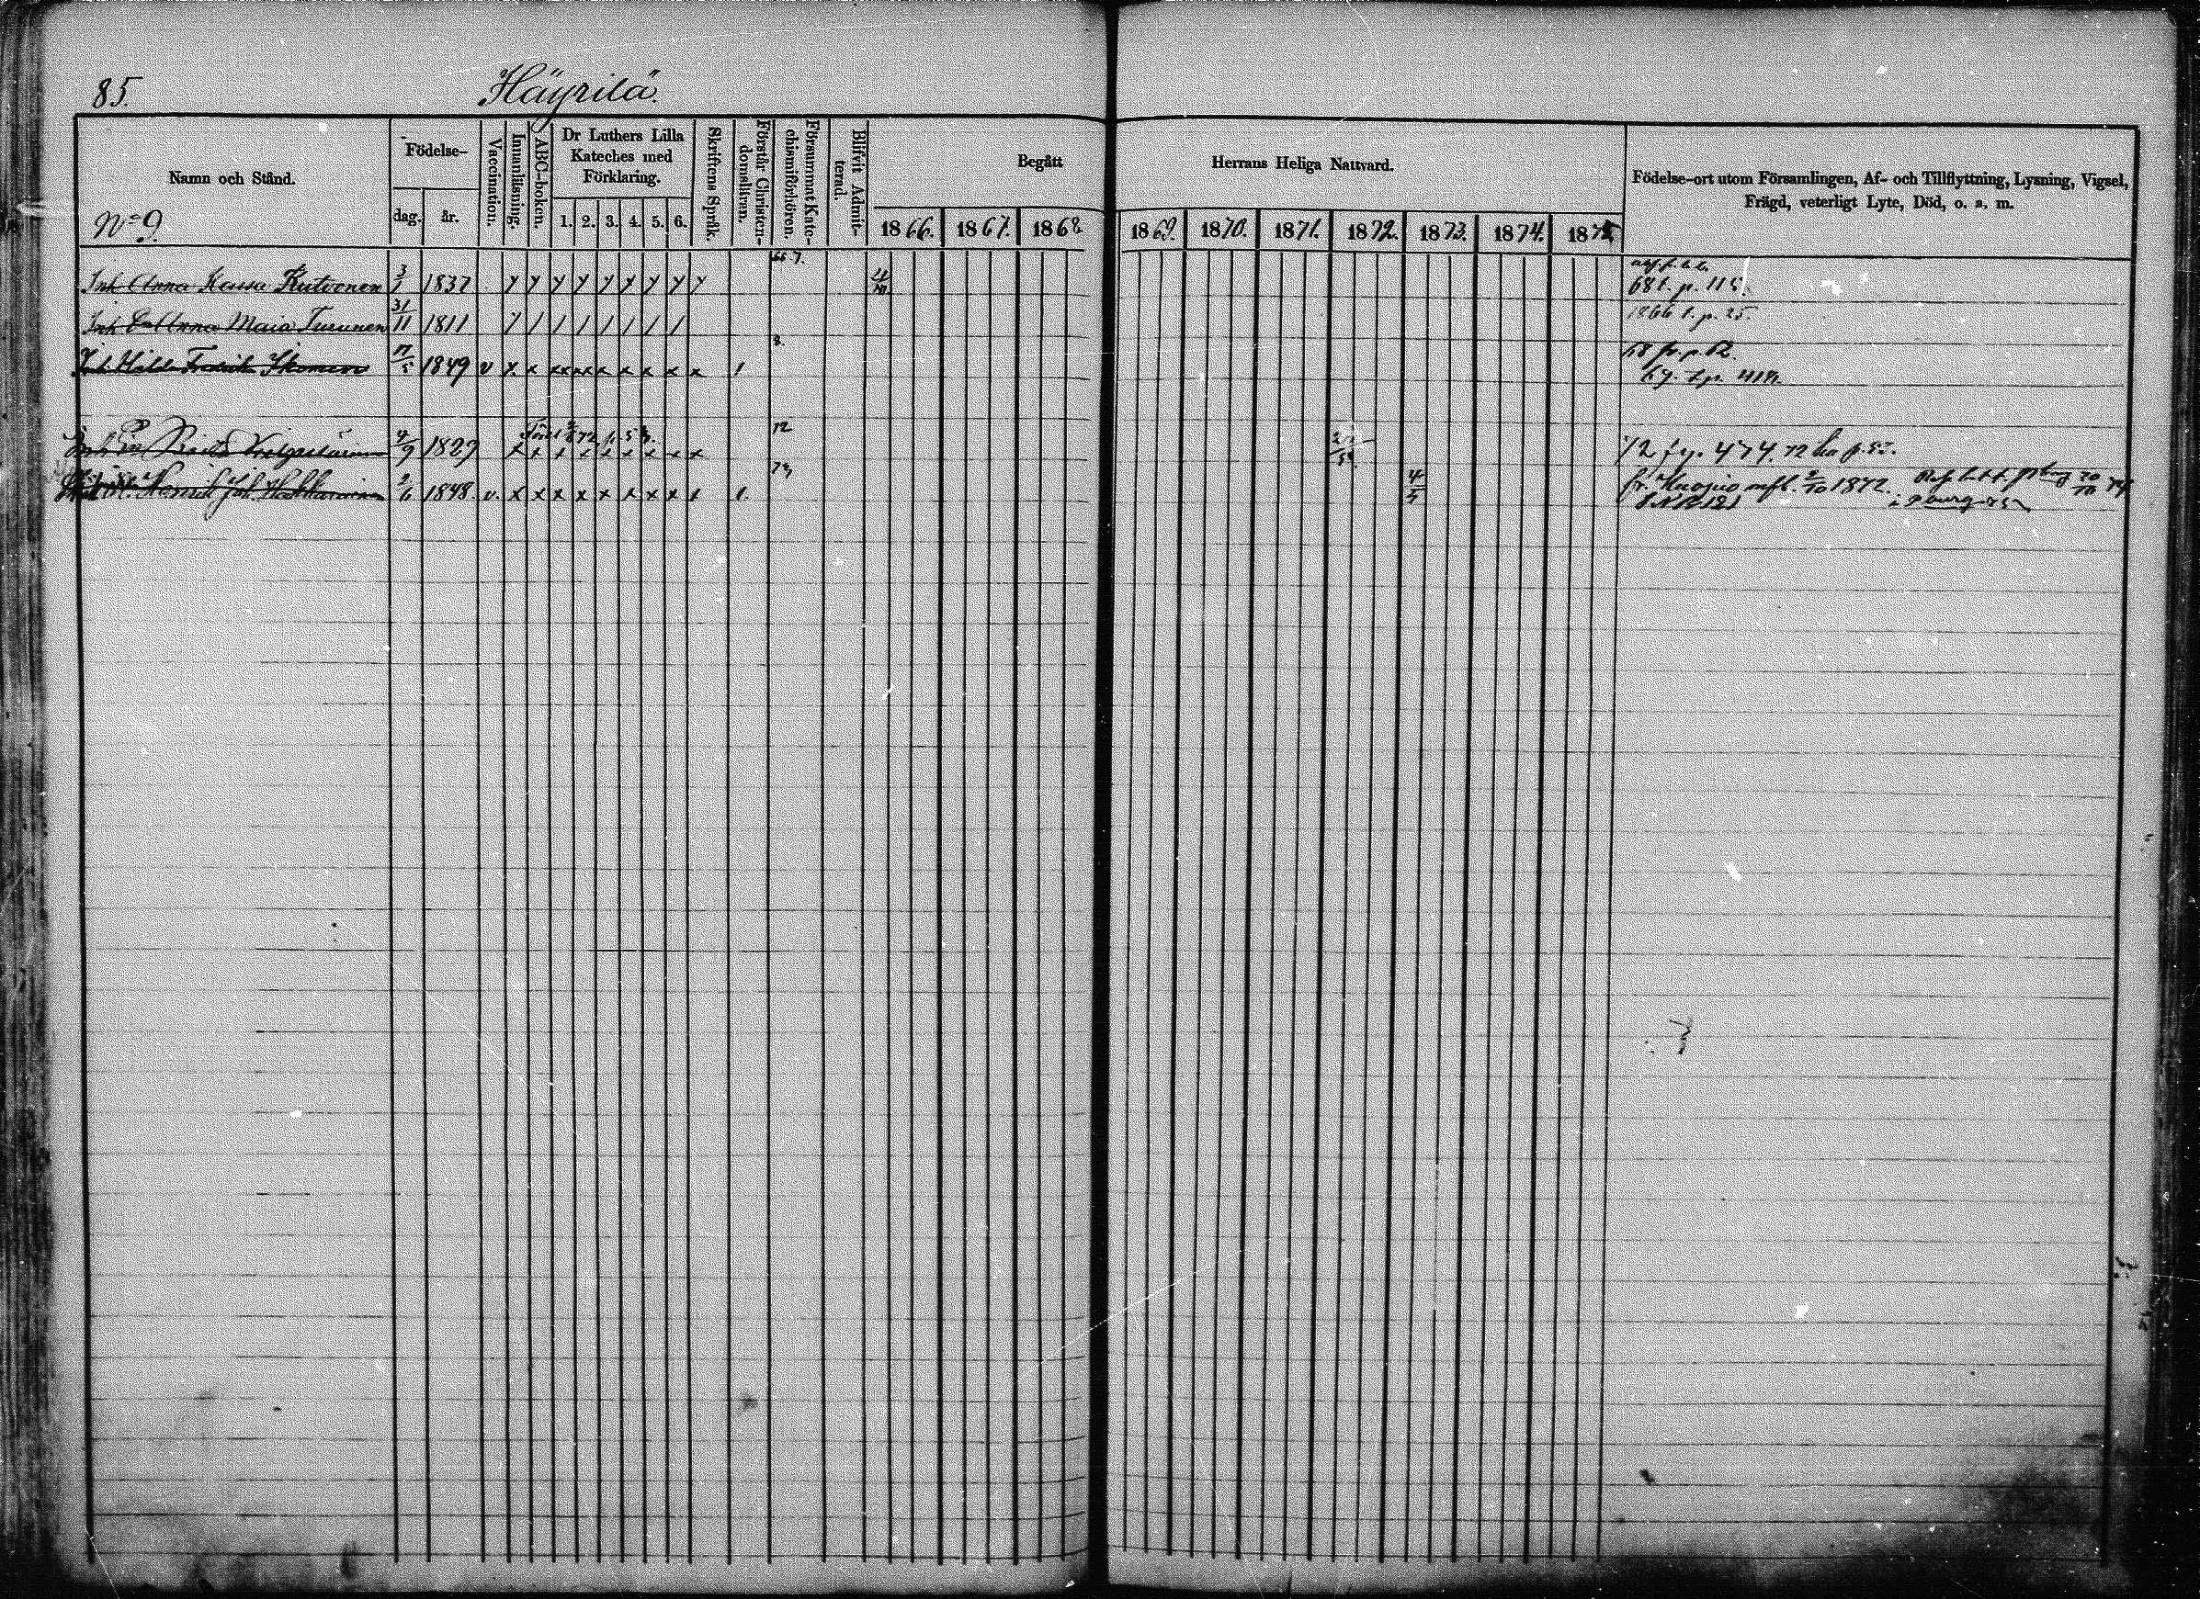 85.
Häyrilä.
Namn och Stånd.
Födelse-
dag.
år.
Vaccination.
Innanläsning.
ABC-boken.
Dr Luthers Lilla
Kateches med
Förklaring.
1. 2. 3. 4. 5. 6.
Skriftens Språk.
Förstår Christen-
domsläran.
Försummat Kate-
chismiförhören.
Blifvit Admit-
terad.
Begått
Herrans Heliga Nattvard.
1866. 1867. 1868. 1869. 1870. 1871. 1872. 1873. 1874. 1875
Födelse-ort utom Församlingen, Af- och Tillflyttning, Lysning, Vigsel,
Frägd, veterligt Lyte, Död, o. s. m.
No 9.
Inh Anna Kaisa Kutvonen 3/1 1837 y y y y y y y y y 66.7.
68 t. p. 115.
Maia Turunen 31/11 1811 y / / / / / / /
1866 t. p. 25.
Inh Hilda Fredrik Ikonen 17/5 1849 v y. x x x x x x x x /
68 fr. p. 62.
69. t. p.
1829 x x x x x x x x 72
72 f. p. 474. 72
Henrik Joh. 2/6 1848. v. x x x x x x x x x 1. 73 4/5
fr. Kuopio infl. 2/10 1872.